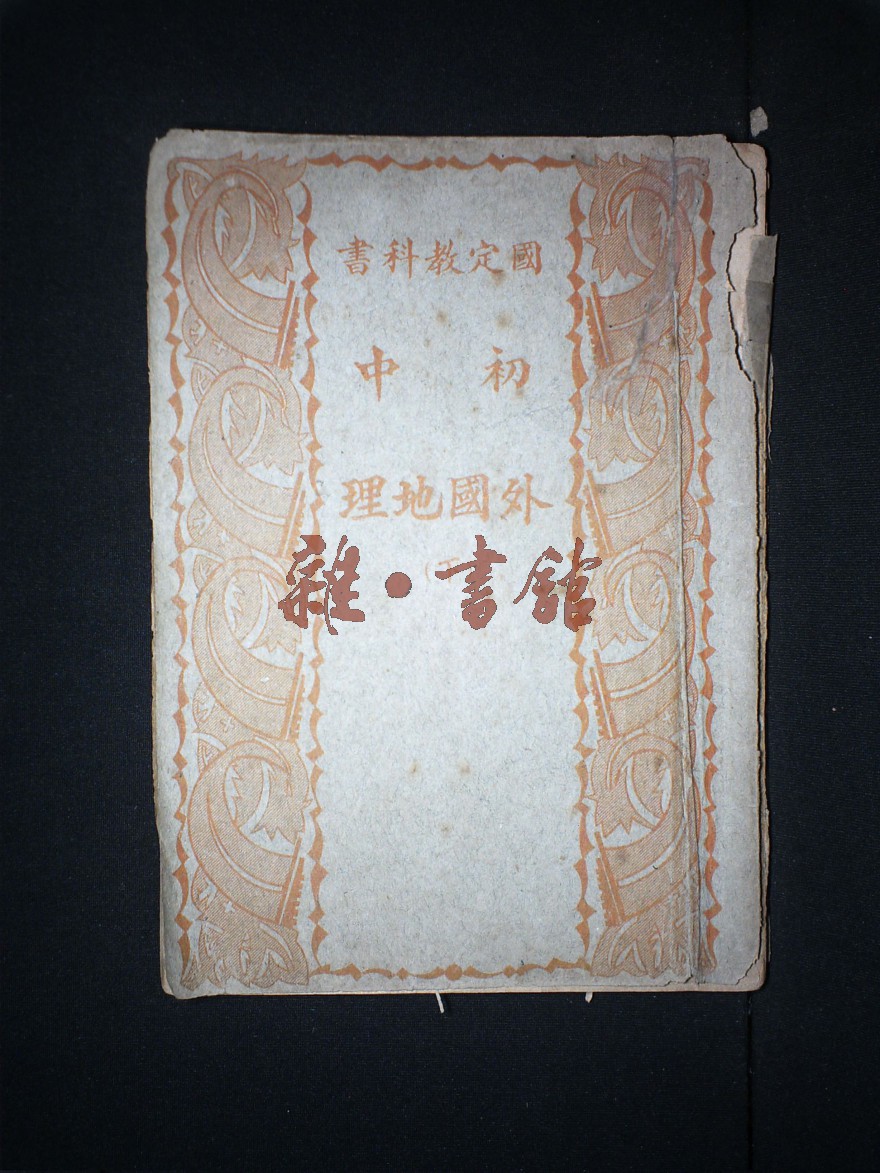 國定教科書
初中
外國地理
雜·書館